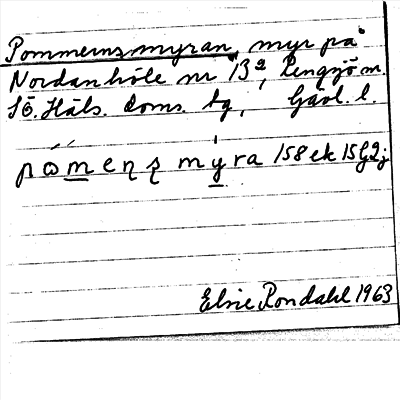 Pommernsmyran, myr på
Nordanhöle nr 13ᵃ, Rengsjö sn.
Sö. Häls. doms. tg, Gävl. l.
myra 158 ek 15G2j
Elsie Rondahl 1963